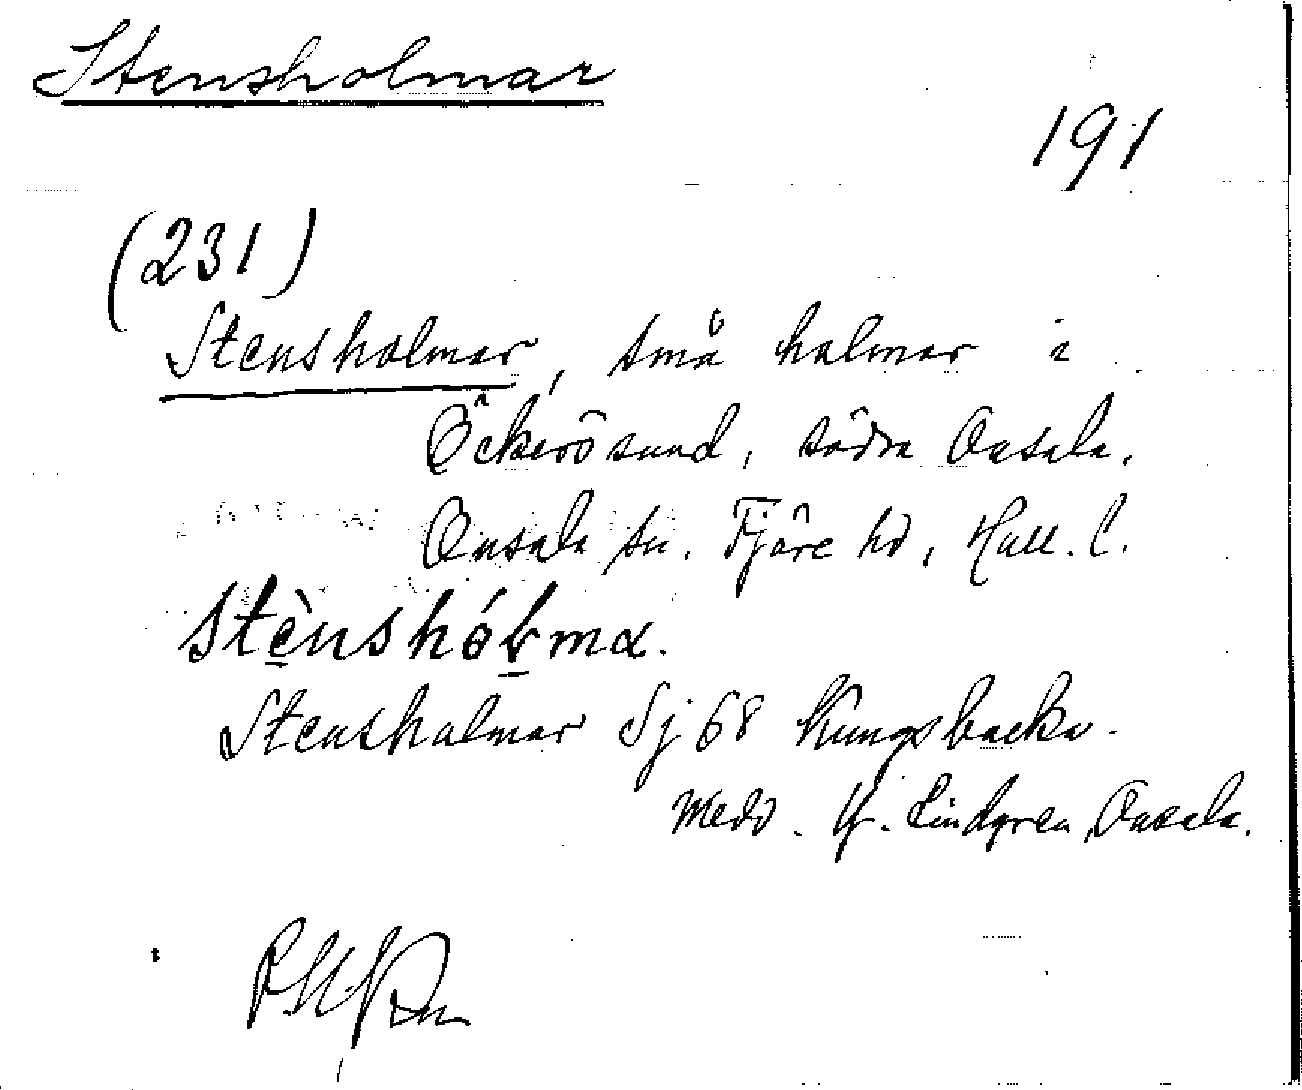 Stensholmar
191
(231)
Stensholmar, små holmar i
Öckerösund, södra Onsala.
Onsala sn. Fjäre hd, Hall. l.
stènshólma.
Stensholmar Sj 68 Kungsbacka.
Medd. Hj. Lindgren, Onsala.